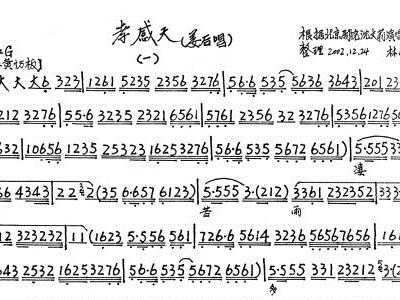 孝感天(姜后唱)
(一)
根据北京剧院沈文莉演
整理 2002.12.24 林
=G
黄切板】
大大大6 323|1261 5235 2356 3276|56·6 535 5636 3643|201 23
212 3276|55·6 3235 2321 6561|5761 2356 32 3276|5356
632|10656 1235 25323 16253276|56·6 535 5672 6561)|5·555 33
凄
64 4343|22 (35 6·657 6123)|5·555 3·(212) 3361 2323523 33
苦 雨
12 323232|11(1623 5·556 561|726·6 5614 3236 56567656 16
643 2532 16253276|56·6 535 5672 6561)|5·555 331 23212